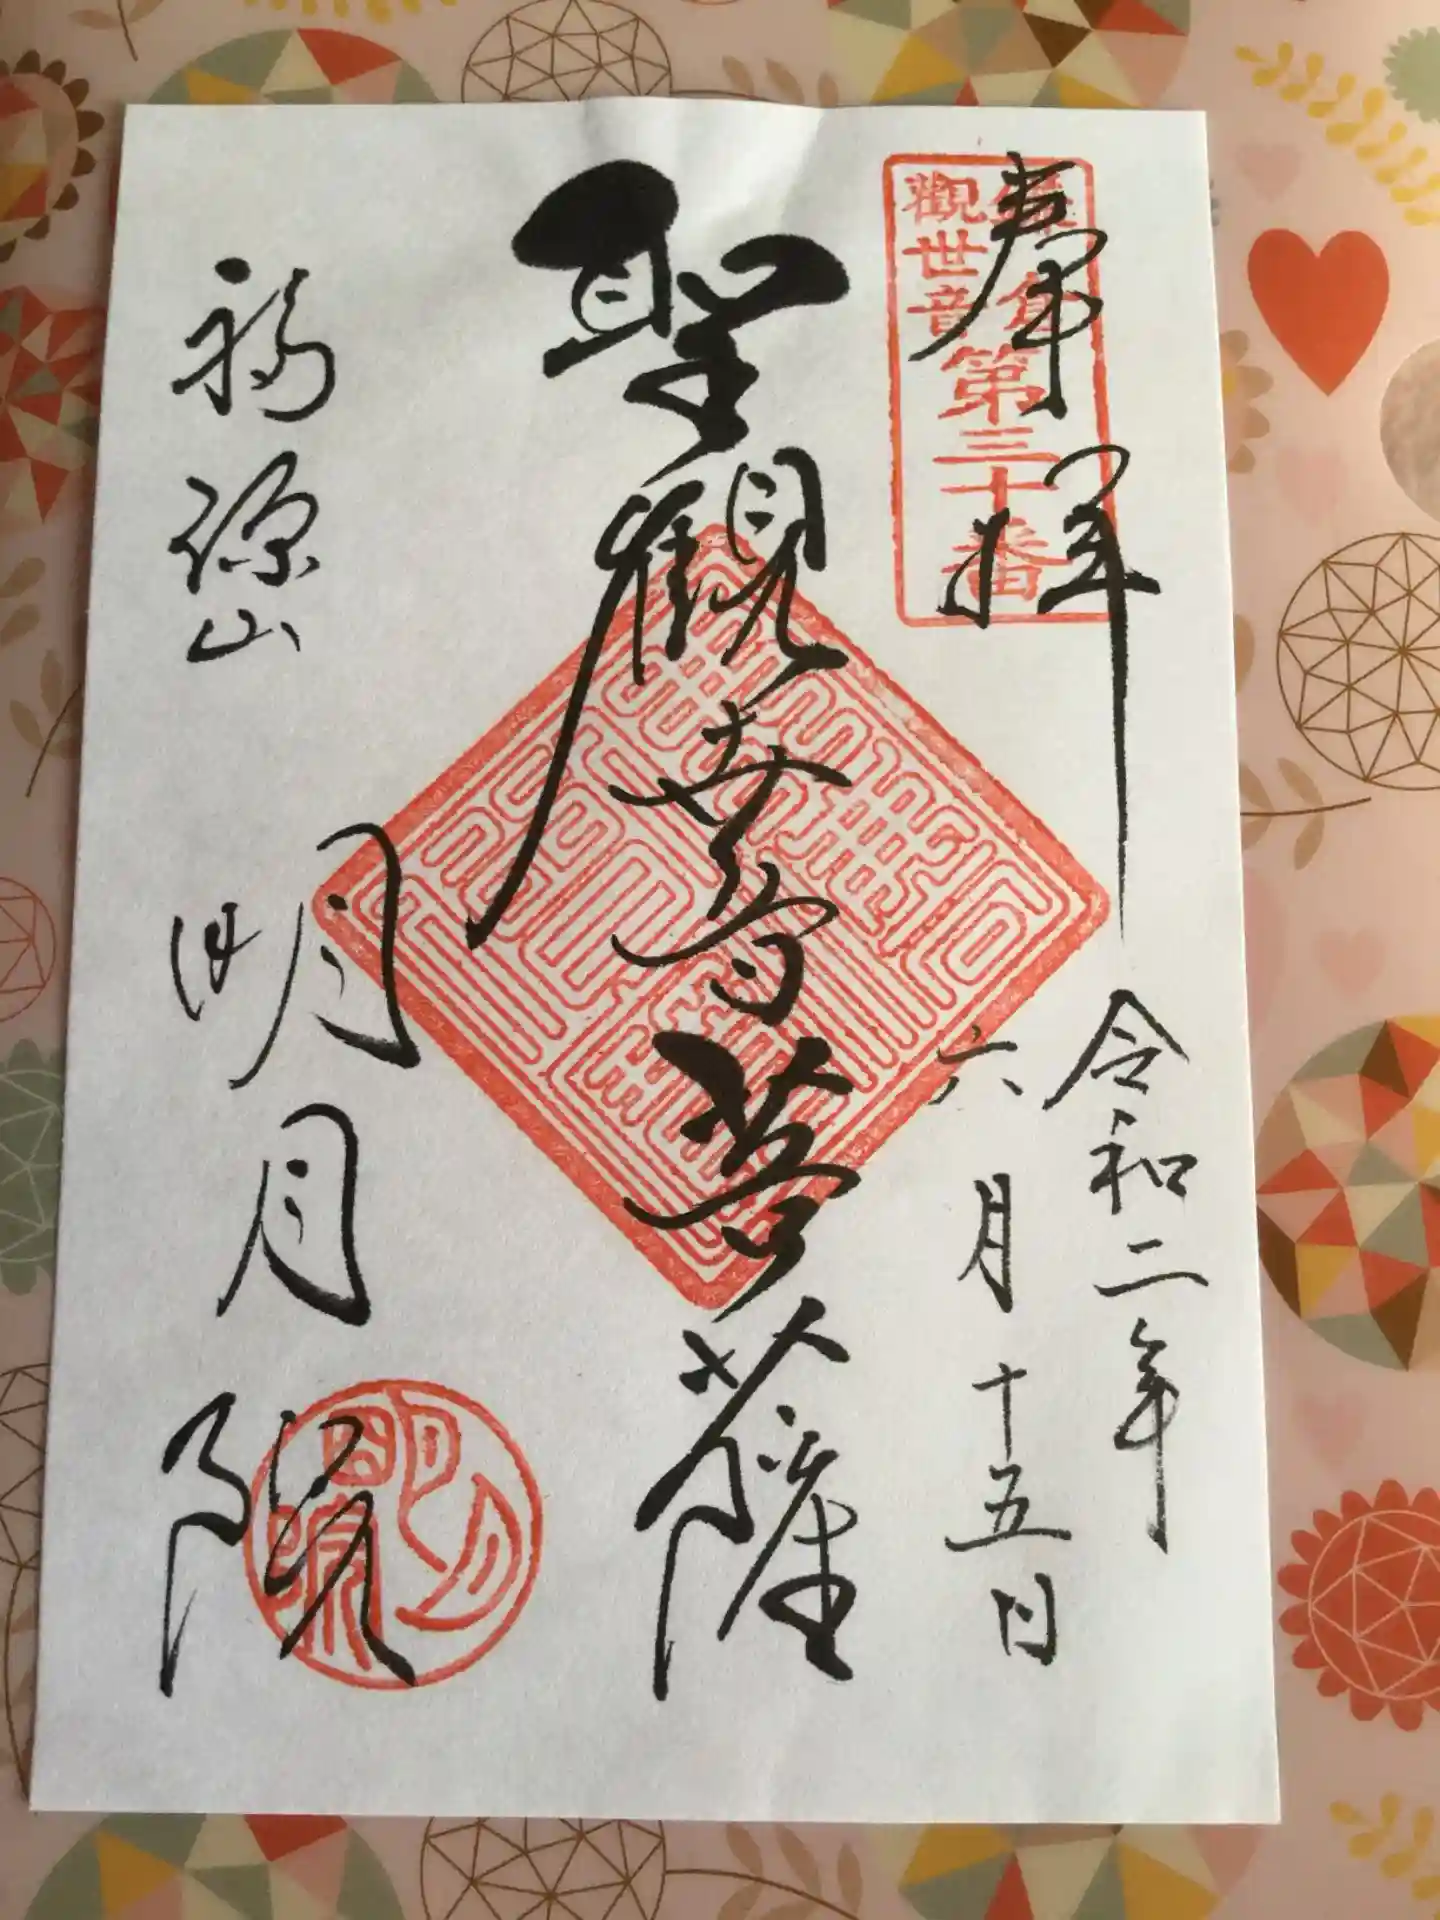 奉拝
鎌倉
觀世音
第三十番
令和二年
六月十五日
聖觀世音菩薩
福源山
明月院